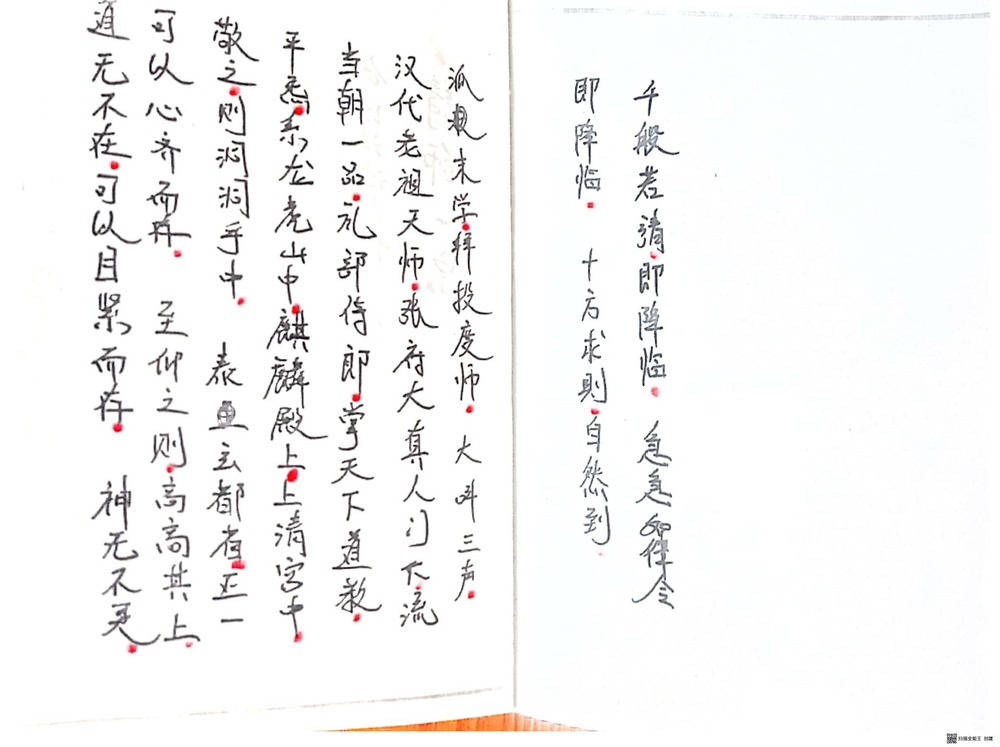 道无不在可以目紧而存 神无不灵
可以心齐而存 至仰之则高高其上
敬之则洞洞乎中 泰玄都省正一
平炁系龙虎山中麒麟殿上上清宫中
当朝一品礼部侍郎掌天下道教
汉代老祖天师張府大真人门下流
派末学拜投度师大叫三声
即降临 十方求則自然到
千般若請即降临 急急如律令
扫描全能王 创建